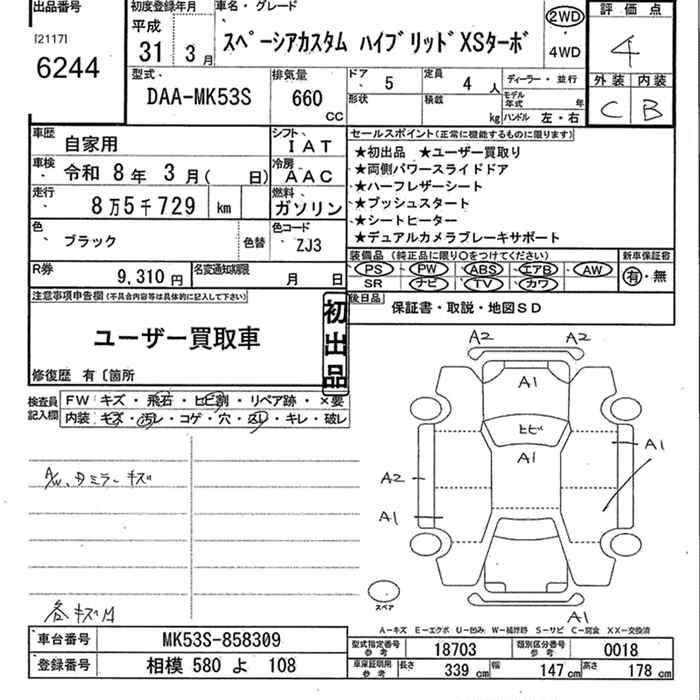 出品番号
[2117]
6244
初度登録年月
平成
31年 3月
車名・グレード
スペーシアカスタム ハイブリッドXSターボ
2WD
4WD
評価点
4
外装 内装
C B
型式
DAA-MK53S
排気量
660
CC
ドア
5
定員
4人
形状
積載
kg
ディーラー・並行
モデル年式 年
ハンドル 左・右
車歴
自家用
シフト
IAT
車検
令和 8年 3月( 日)
冷房
AAC
走行
8万5千729 km
燃料
ガソリン
色
ブラック
色替
色コード
ZJ3
R券
9,310円
名変通知期限
月 日
セールスポイント(正常に機能するものに限ります)
★初出品 ★ユーザー買取り
★両側パワースライドドア
★ハーフレザーシート
★プッシュスタート
★シートヒーター
★デュアルカメラブレーキサポート
装備品 (純正品に限り○をつけてください)
PS PW ABS エアB AW
SR ナビ TV カワ
新車保証書
有・無
後日品
保証書・取説・地図SD
注意事項申告欄(不具合内容等は具体的に記入して下さい)
ユーザー買取車
初出品
修復歴 有〔箇所
検査員記入欄
FW キズ・飛石・ヒビ割・リペア跡・×要
内装・キズ・汚レ・コゲ・穴・スレ・キレ・破レ
A/W、タミラーキズ
各キズ凹
A2 A2
A1
ヒビ
A1
A1
A2
A1
A1
スペア
A-キズ E-エクボ U-凹み W-補修跡 S-サビ C-腐食 XX-交換済
車台番号
MK53S-858309
登録番号
相模 580 よ 108
型式指定番号
参考
18703
類別区分番号
参考
0018
車庫証明用
参考
長さ 339 cm 幅 147 cm 高さ 178 cm